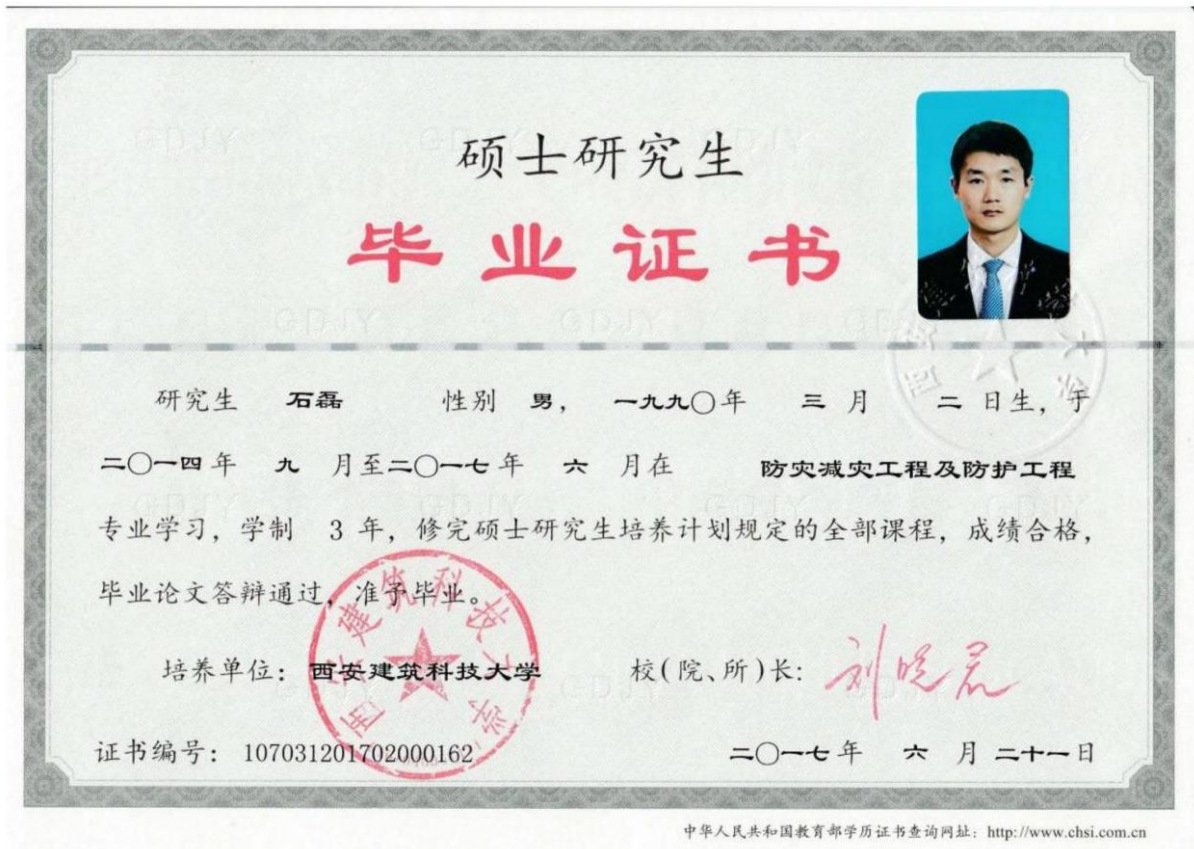 硕士研究生
毕业证书
研究生 石磊 性别 男， 一九九〇年 三 月 二 日生，于
二〇一四年 九 月至二〇一七年 六 月在 防灾减灾工程及防护工程
专业学习，学制 3 年，修完硕士研究生培养计划规定的全部课程，成绩合格，
毕业论文答辩通过，准予毕业。
培养单位：西安建筑科技大学 校(院、所)长: 刘晓君
西安建筑科技大学
证书编号：107031201702000162 二〇一七年 六 月 二十一日
中华人民共和国教育部学历证书查询网址：http://www.chsi.com.cn
GDJY